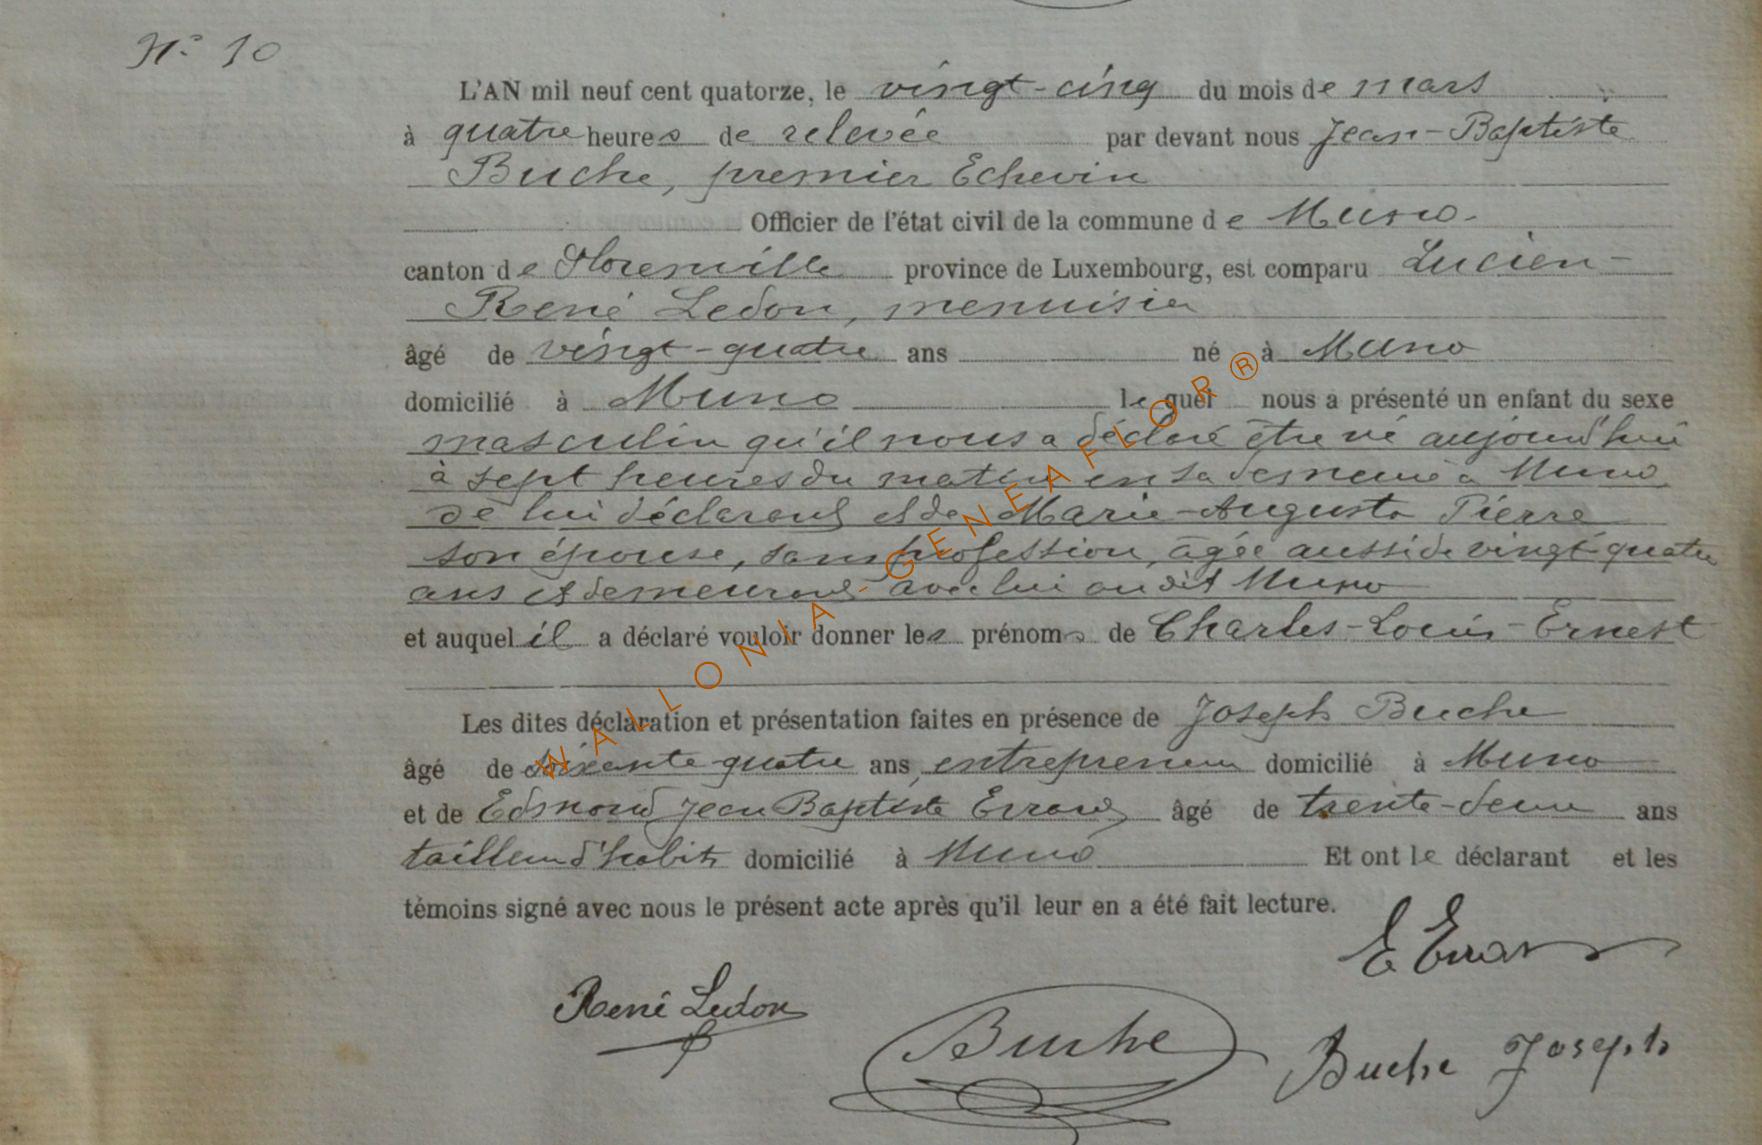 N° 10
L'AN mil neuf cent quatorze, le vingt-cinq du mois de mars
à quatre heures de relevée par devant nous Jean-Baptiste
Buche, premier Echevin
Officier de l'état civil de la commune de Muno.
canton de Florenville province de Luxembourg, est comparu Lucien-
René Ledon, menuisier
âgé de vingt-quatre ans né à Muno
domicilié à Muno lequel nous a présenté un enfant du sexe
masculin qu'il nous a déclaré être né aujourd'hui
à sept heures du matin en sa demeure à Muno
de lui déclarant et de Marie-Augusta Pierre
son épouse, sans profession, âgée aussi de vingt-quatre
ans et demeurant avec lui au dit Muno
et auquel il a déclaré vouloir donner les prénoms de Charles-Louis-Ernest
Les dites déclaration et présentation faites en présence de Joseph Buche
âgé de soixante quatre ans, entrepreneur domicilié à Muno
et de Edmond Jean Baptiste Errard, âgé de trente-deux ans
tailleur d'habits domicilié à Muno Et ont le déclarant et les
témoins signé avec nous le présent acte après qu'il leur en a été fait lecture.
E Errard
René Ledon
Buche
Buche Joseph
WALLONIA-GENEAFLOR®